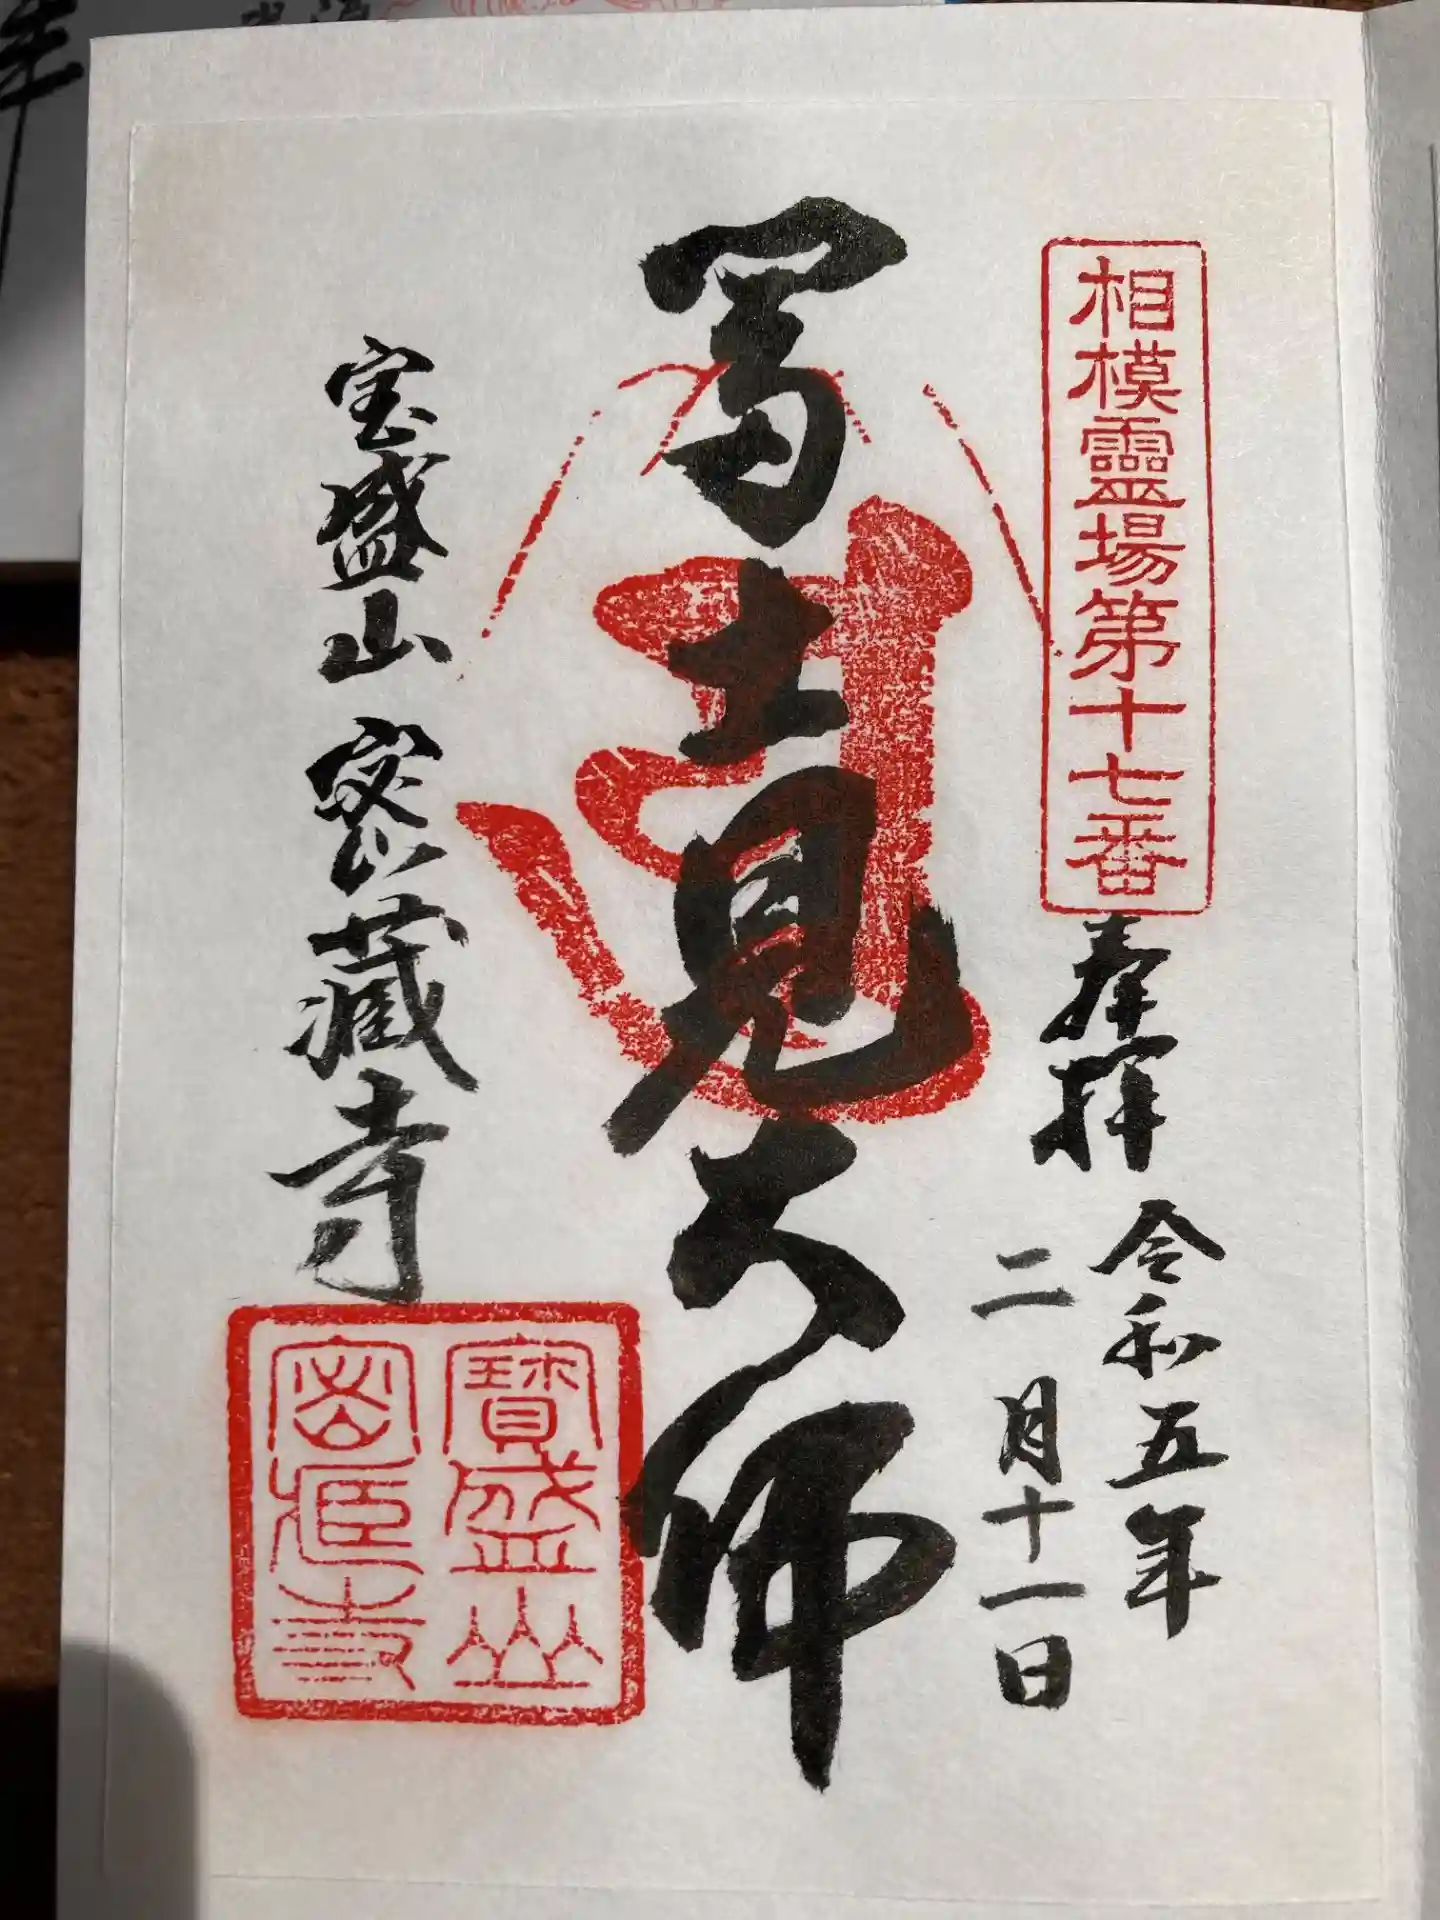 相模霊場第十七番
奉拝
令和五年
二月十一日
冨士見大師
宝盛山 密蔵寺
寶盛山
密蔵寺